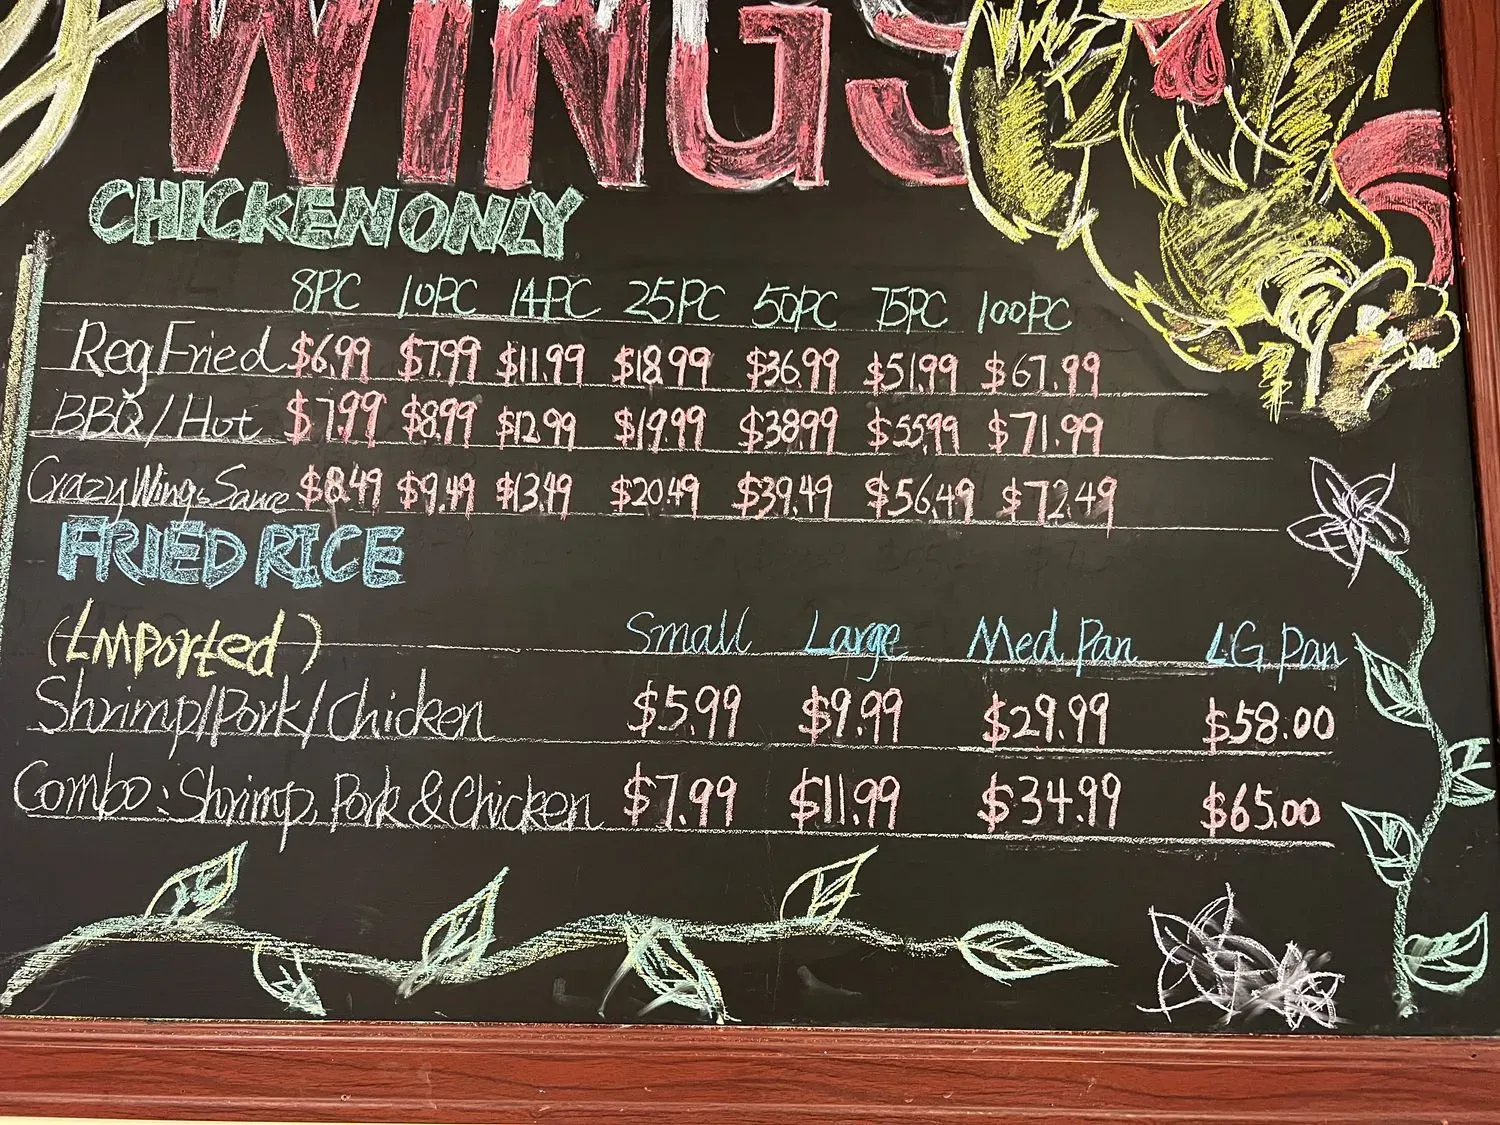 WINGS
CHICKEN ONLY
8PC 10PC 14PC 25PC 50PC 75PC 100PC
Reg Fried $6.99 $7.99 $11.99 $18.99 $36.99 $51.99 $67.99
BBQ/Hot $7.99 $8.99 $12.99 $19.99 $38.99 $55.99 $71.99
Crazy Wings Sauce $8.49 $9.49 $13.49 $20.49 $39.49 $56.49 $72.49
FRIED RICE
(Imported) Small Large Med Pan LG Pan
Shrimp/Pork/Chicken $5.99 $9.99 $29.99 $58.00
Combo: Shrimp, Pork & Chicken $7.99 $11.99 $34.99 $65.00